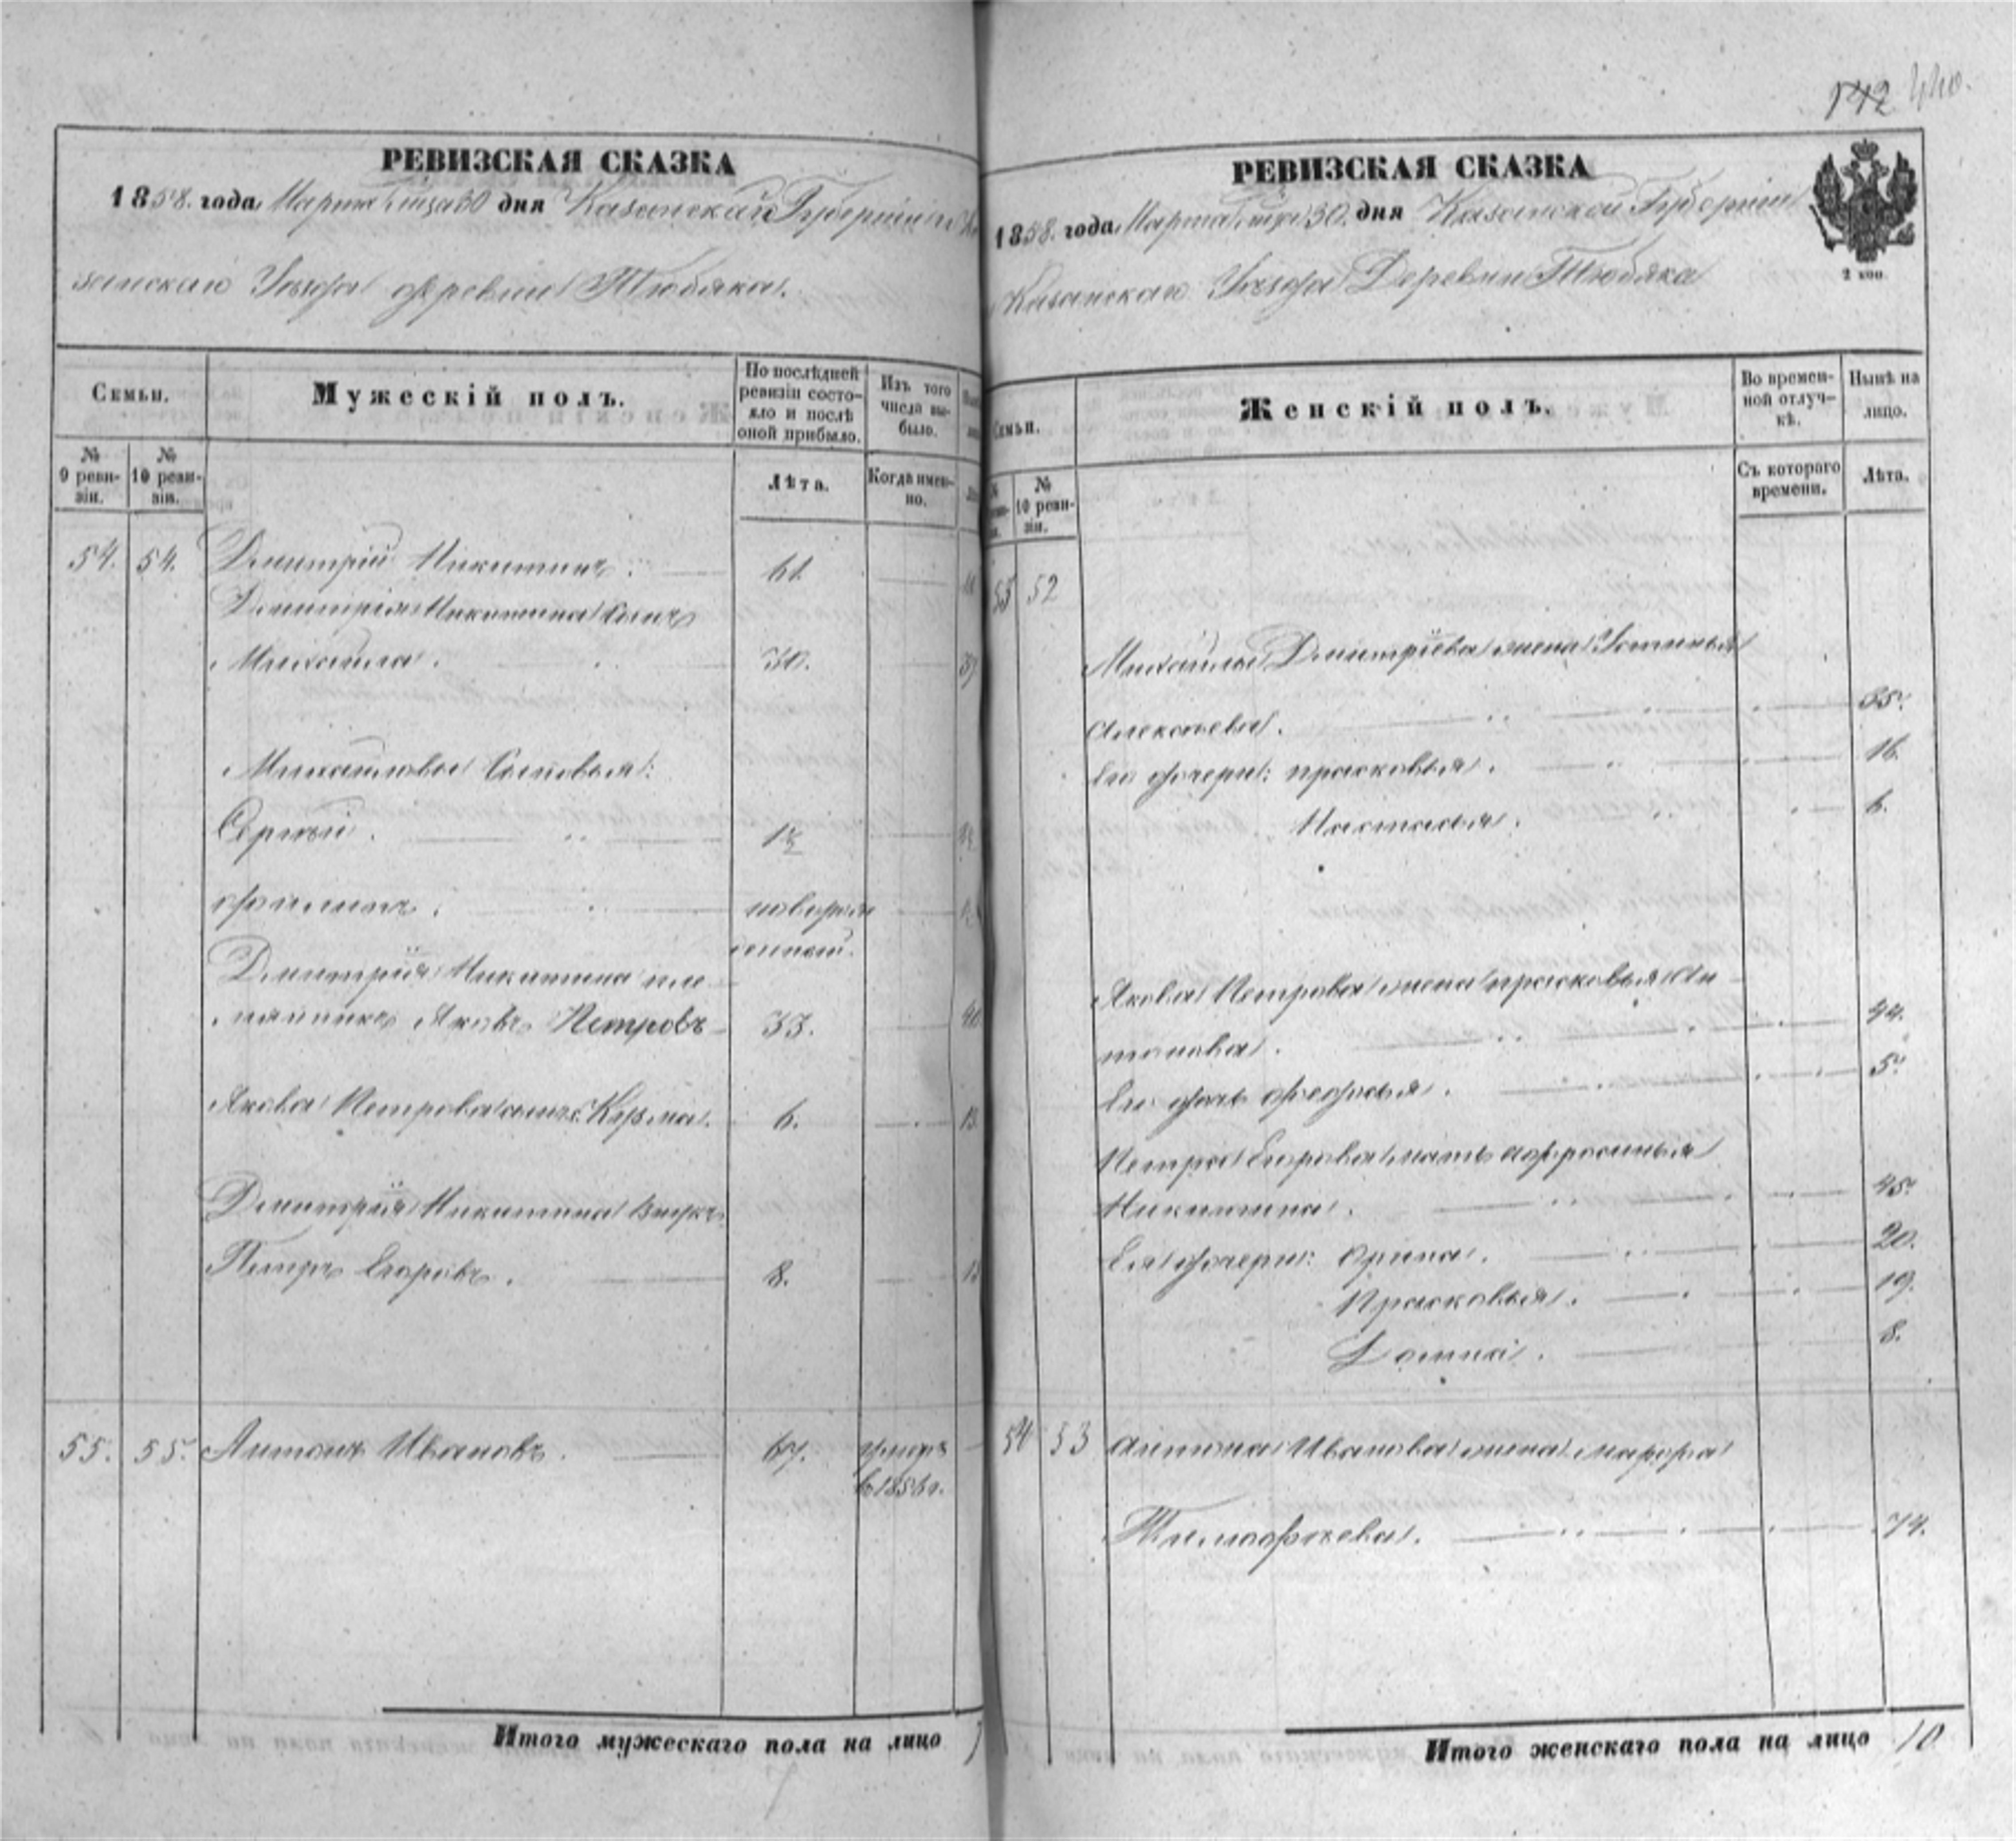 142
РЕВИЗСКАЯ СКАЗКА
1858. года, Марта 30 дня Казанской Губерніи Ка
занскаго Уѣзда деревни Тюбяка.
Семьи.
Мужескій полъ.
По послѣдней ревизіи состояло и послѣ оной прибыло.
Изъ того числа выбыло.
№ 9 ревизіи.
№ 10 ревизіи.
Лѣта.
Когда именно.
54. 54. Дмитрій Никитинъ. 61.
Дмитрія Никитина сынъ
Михайла. 30.
Михайловы Сыновья:
Сергѣй. 1½
Филиппъ. новорож
денный.
Дмитрія Никитина пле
мянникъ Яковъ Петровъ 33. 40
Якова Петрова сынъ Кузма. 6. 13
Дмитрія Никитина внукъ
Петръ Егоровъ. 8.
55. 55. Антонъ Ивановъ. 67. умеръ
в 1856 г.
Итого мужескаго пола на лицо 7
РЕВИЗСКАЯ СКАЗКА
1858. года, Марта 30. дня Казанской Губерніи
Казанскаго Уѣзда Деревни Тюбяка
2 коп.
Семьи.
Женскій полъ.
Во временной отлучкѣ.
Нынѣ на лицо.
№ 10 ревизіи.
Съ котораго времени.
Лѣта.
53 52
Михайлы Дмитріева жена Устинья
Алексѣева. 35.
Его дочери: Прасковья. 16.
Настасья. 6.
Якова Петрова жена Прасковья Ан
тонова. 44.
Его дочь Федосья. 5.
Петра Егорова мать Афросинья
Никитина. 45.
Ея дочери: Орина. 20.
Прасковья. 19.
Домна. 8.
54 53 Антона Ивanова жена Марфа
Тимофѣева. 74.
Итого женскаго пола на лицо 10